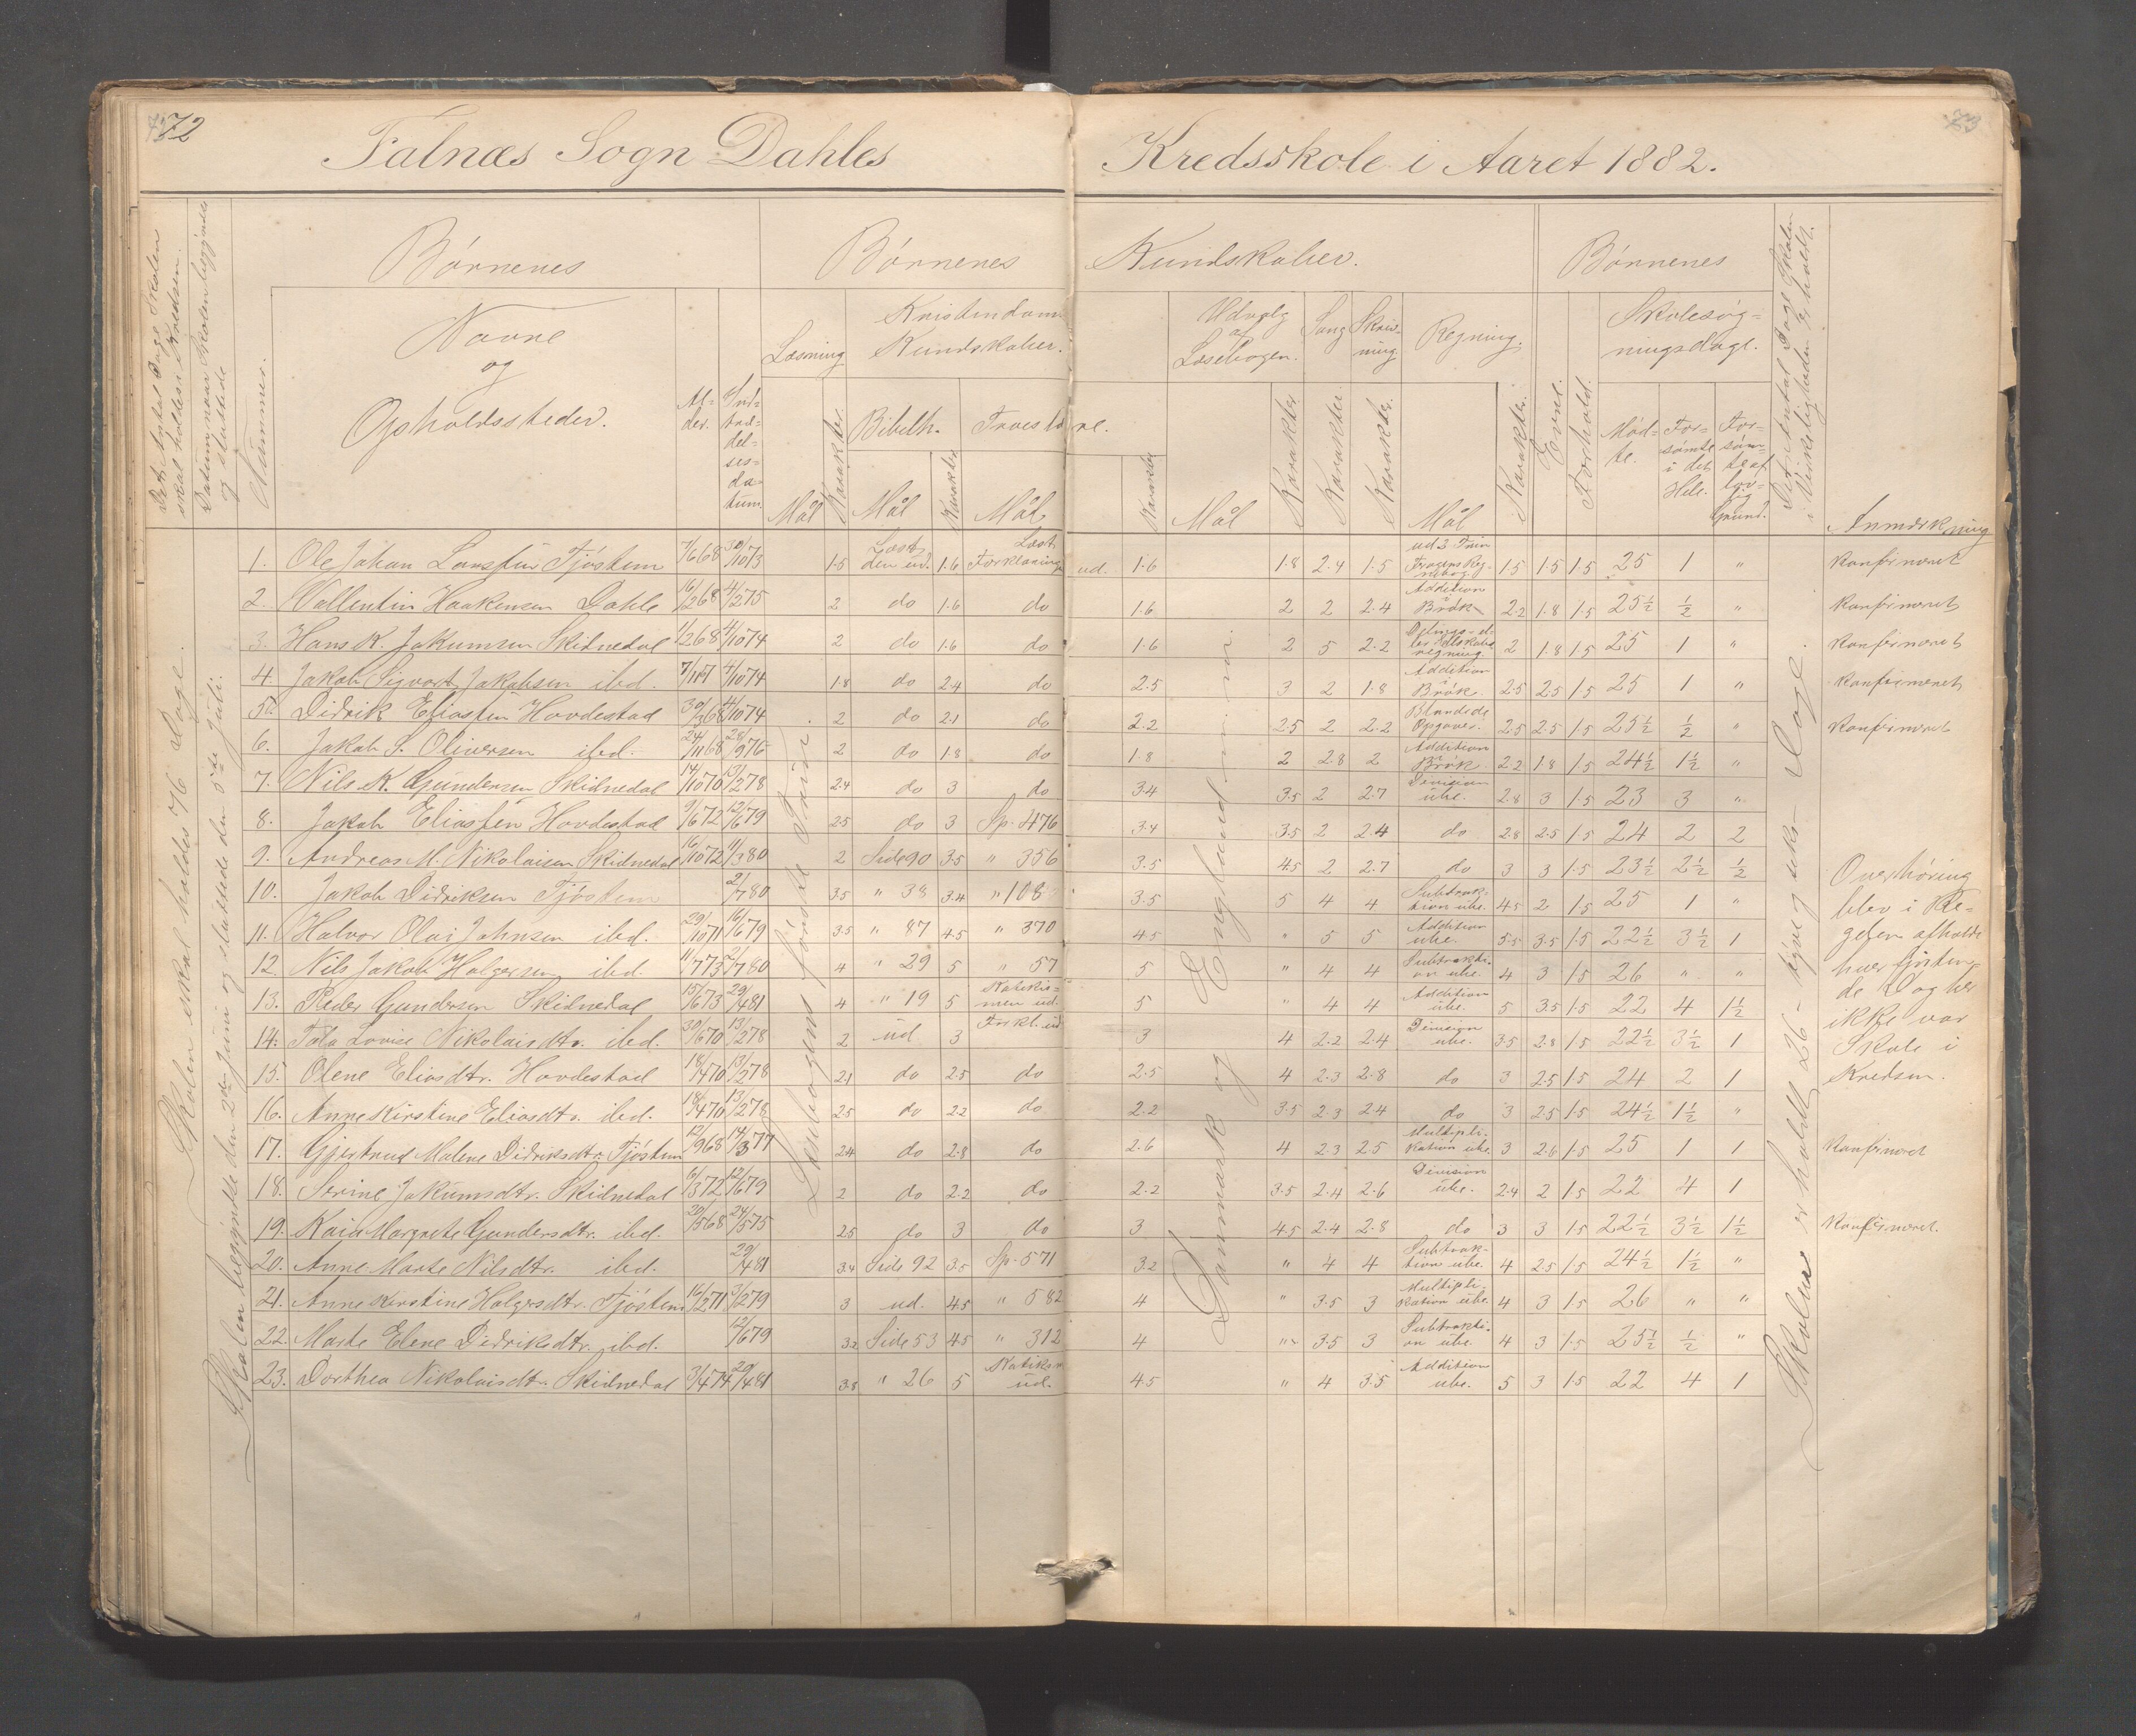 72
Falnæs Sogn Dahles Kredsskole i Aaret 1882.
Det Antal Dage Skolen skal holdes i Kredsen.
Datum naar Skolen begyndte og sluttede
Nummer.
Børnenes
Navne
og
Opholdssteder.
Al-
der.
Ind-
træd-
del-
ses-
da-
tum.
Børnenes Kundskaber.
Læsning
Kristendoms
Kundskaber.
Bibelh. Troeslære.
Mål Karakter. Mål Karakter Mål Karakter
Udvalg
af
Læsebogen.
Mål Karakter
Sang Karakter.
Skriv-
ning. Karakter.
Regning.
Mål Karakter.
Evne.
Forhold.
Børnenes
Skolesøg-
ningsdage.
Mød-
te.
For-
sömte
i det
Hele.
For-
söm-
te af
lov-
lig
Grund.
Det Antal Dage Skolen i Virkeligheden er holdt.
Anmærkning
Skolen skal holdes 76 Dage.
Skolen begyndte den 2den Juni og sluttede den 5te Juli.
Læsebogens fördte Parti
Danmark og England
Skolen er holdt 26 - tyve og seks - Dage.
1. Ole Johan Tjöstem 7/6 68 30/10 73 1.5 Læst den ud. 1.6 Læst Forklaring ud. 1.6 1.8 2.4 1.5 1.5 1.5 1.5 25 1 " Konfirmeret
2. Vallentin Haakensen Dahle 16/2 68 4/2 75 2 do 1.6 do 1.6 2 2 2.4 Addition i Brök 2.2 1.8 1.5 25½ ½ " Konfirmeret
3. Hans K. Jakumsen Skidnedal 1/2 68 4/10 74 2 do 1.6 do 1.6 2 5 2.2 2 1.8 1.5 25 1 " Konfirmeret
4. Jakob Sigvart Jakobsen ibd. 4/10 74 1.8 do 2.4 do 2.5 3 2 1.8 Addition i Brök. 2.5 2.5 1.5 25 1 " Konfirmeret
5. Didrik Eliassen Hovdestad 4/10 74 2 do 2.1 do 2.2 2.5 2 2.2 Blandede Opgaver. 2.5 2.5 1.5 25½ ½ " Konfirmeret
6. Jakob S. Oliversen ibd. 24/11 68 28/9 76 2 do 1.8 do 1.8 2 2.8 2 Addition i Brök 2.2 1.8 1.5 24½ 1½ "
7. Nils K. Gundersen Skidnedal 14/10 70 13/2 78 2.4 do 3 do 3.4 3.5 2 2.7 Division ube. 2.8 3 1.5 23 3 "
8. Jakob Eliassen Hovdestad 9/6 72 12/6 79 2.5 do 3 Sp. 476 3.4 3.5 2 2.4 do 2.8 2.5 1.5 24 2 2
9. Andreas M. Nikolaisen Skidnedal 16/10 72 11/3 80 2 Side 90 3.5 " 356 3.5 4.5 2 2.7 do 3 3 1.5 23½ 2½ ½
10. Jakob Didriksen Tjöstem 2/7 80 3.5 " 38 3.4 " 108 3.5 5 4 4 Subtrak-tion ube. 4.5 2 1.5 25 1 "
11. Halvor Olai Johnsen ibd. 29/10 71 16/6 79 3.5 " 87 4.5 " 370 4.5 " 5 5 Addition ube. 5.5 3.5 1.5 22½ 3½ 1
12. Nils Jakob Holgersen ibd. 11/7 73 2/7 80 4 " 29 5 " 57 5 " 4 4 Subtrakti-on ube. 4 3 1.5 26 " "
13. Peder Gundersen Skidnedal 15/6 73 29/4 81 4 " 19 5 Katekis-men ud. 5 " 4 4 Addition ube. 5 3.5 1.5 22 4 1½
14. Lovise Nikolaisdtr. ibd. 30/6 70 13/2 78 2 ud 3 Forkl. ud. 3 4 2.2 2.4 Division ube. 3.5 2.8 1.5 22½ 3½ 1
15. Olene Eliasdtr. Hovdestad 18/4 70 13/2 78 2.1 do 2.5 do 2.5 4 2.3 2.8 do 3 2.5 1.5 24 2 1
16. Anne Kirstine Eliasdtr. ibd. 18/4 70 13/2 78 2.5 do 2.2 do 2.2 3.5 2.3 2.4 do 3 2.5 1.5 24½ 1½ "
17. Gjertrud Malene Didriksdtr. Tjöstem 12/9 68 14/3 77 2.4 do 2.8 do 2.6 4 2.3 2.5 Multipli-kation ube. 3 2.6 1.5 25 1 1 Konfirmeret
18. Serine Jakumsdtr. Skidnedal 6/3 72 12/6 79 2 do 2.2 do 2.2 3.5 2.4 2.6 Division ube. 2.4 2 1.5 22 4 1
19. Karin Margrete Gundersdtr. ibd. 20/5 68 24/5 75 2.5 do 3 do 3 4.5 2.4 2.8 do 3 3 1.5 22½ 3½ 1½ Konfirmeret.
20. Anne Marte Nilsdtr. ibd. 29/4 81 3.4 Side 92 3.5 Sp. 571 3.2 " 4 4 Subtrak-tion ube. 4 2.5 1.5 24½ 1½ "
21. Anne Kirstine Holgersdtr. Tjöstem 16/2 71 3/2 79 3 ud. 4.5 " 582 4 " 3.5 3 Multipli-kation ube. 4 3 1.5 26 " "
22. Marte Elene Didriksdtr. ibd. 12/6 79 3.2 Side 53 4.5 " 312 4 " 3.5 3 Subtrakti-on ube. 4 3 1.5 25½ ½ "
23. Dorthea Nikolaisdtr. Skidnedal 3/4 74 29/4 81 3.8 " 26 5 Katekism ud. 4.5 " 4 3.5 Addition ube. 5 3 1.5 22 4 1
Overhöring
blev i Re-
gelen afholdt
hver
de Dag her
ikke var
Skole i
Kredsen.